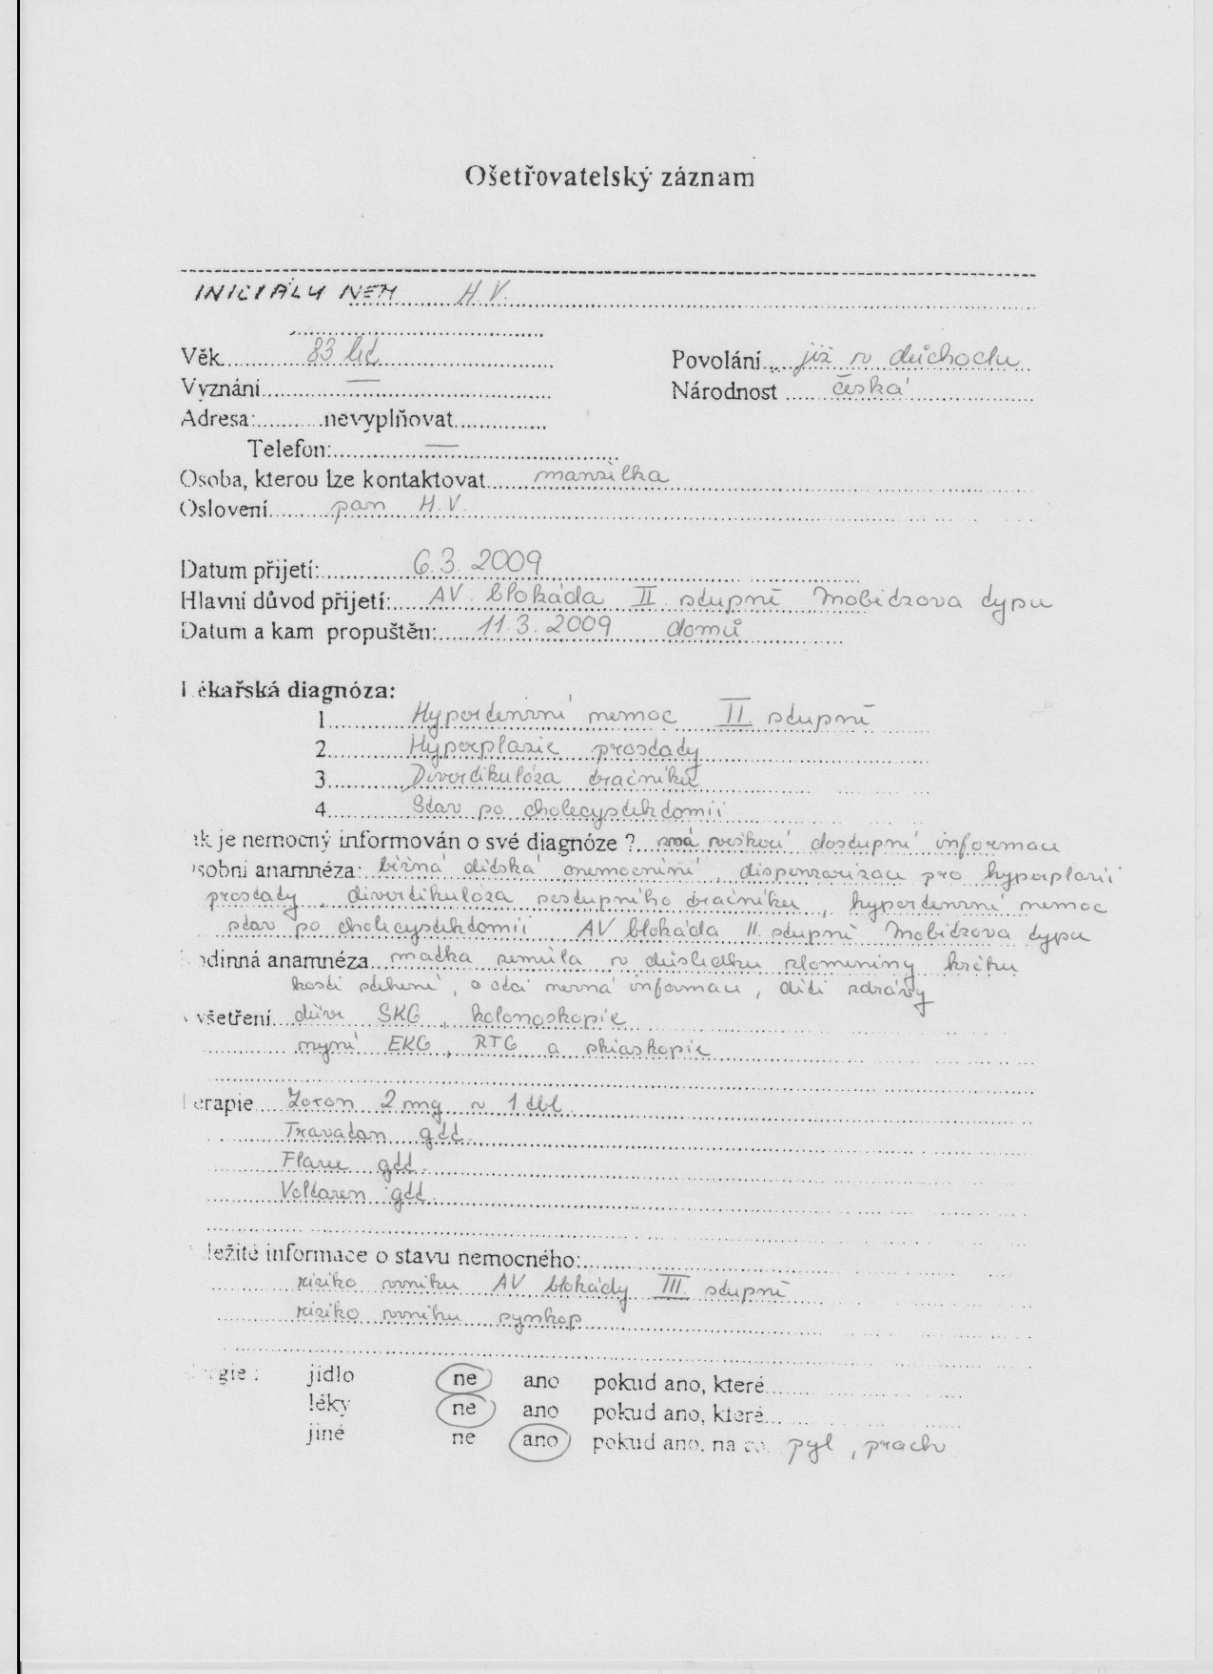 Ošetřovatelský záznam
INICIÁLY NEM H.V.
Věk 83 let Povolání již v důchodu
Vyznání — Národnost česká
Adresa: nevyplňovat
Telefon: —
Osoba, kterou lze kontaktovat manželka
Oslovení pan H.V.
Datum přijetí: 6.3. 2009
Hlavní důvod přijetí: AV blokáda II. stupně Mobitzova typu
Datum a kam propuštěn: 11.3.2009 domů
Lékařská diagnóza:
1 Hypertenzní nemoc II. stupně
2 Hyperplazie prostaty
3 Divertikulóza tračníku
4 Stav po cholecystektomii
ak je nemocný informován o své diagnóze ? má veškeré dostupné informace
osobní anamnéza: běžná dětská onemocnění, dispenzarizace pro hyperplazii
prostaty, divertikulóza sestupného tračníku, hypertenzní nemoc
stav po cholecystektomii AV blokáda II. stupně Mobitzova typu
odinná anamnéza matka zemřela v důsledku zlomeniny krčku
kosti stehení, o otci nemá informace, děti zdrávy
všetření dříve SKG, kolonoskopie
nyní EKG, RTG a skiaskopie
Terapie Zoxon 2 mg v 1 tbl
Travatan gtt.
Flarex gtt.
Voltaren gtt.
ležité informace o stavu nemocného:
riziko vzniku AV blokády III. stupně
riziko vzniku synkop
rgie : jídlo ne ano pokud ano, které
léky ne ano pokud ano, které
jiné ne ano pokud ano, na co pyl, prach